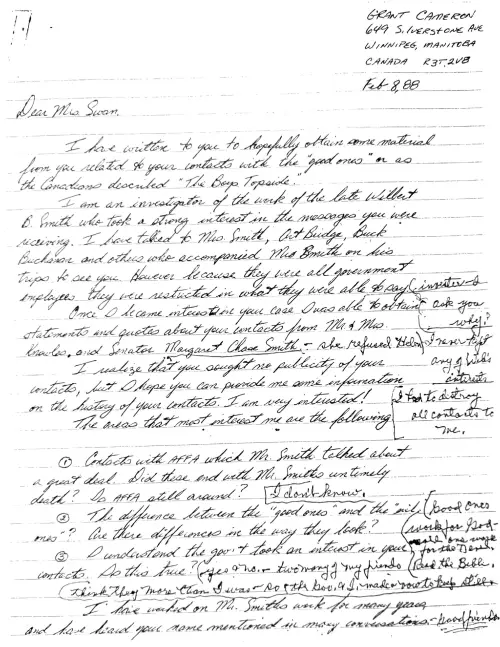 GRANT CAMERON
649 SILVERSTONE AVE
WINNIPEG, MANITOBA
CANADA R3T.2V8
Feb 8, 88
Dear Mrs. Swan,
I have written to you to hopefully obtain some material
from you related to your contacts with the "good ones" or as
the Canadians described "The Boys Topside."
I am an investigator of the work of the late Wilbert
B. Smith who took a strong interest in the messages you were
receiving. I have talked to Mrs. Smith, Art Budge, Buck
Buchanan and others who accompanied Mr Smith on his
trips to see you. However because they were all government
employees they were restricted in what they were able to say.
Once I became interest in your case I was able to obtain
statements and quotes about your contacts from Mr. & Mrs.
Knowles, and Senator Margaret Chase Smith. - she refused Helen
I realize that you sought no publicity of your
contacts, but I hope you can provide me some information
on the history of your contacts. I am very interested!
The areas that most interest me are the following
ask you
why?
I never kept
any of
interests
I had to destroy
all contacts to
me.
① Contacts with AFFA which Mr. Smith talked about
a great deal. Did these end with Mr. Smiths untimely
death? Is AFFA still around? I don't know.
② The difference between the "good ones" and the "evil
ones"? Are there differences in the way they look?
Good ones
work for God -
evil ones work
for the Devil
Read the Bible.
③ I understand the gov't took an interest in your
contacts. Is this true? yes & no - two many of my friends
think they more than I was - so & the Gov. & I made a vow to keep still
I have worked on Mr. Smiths work for many years
and have heard your name mentioned in many conversations. - good friends